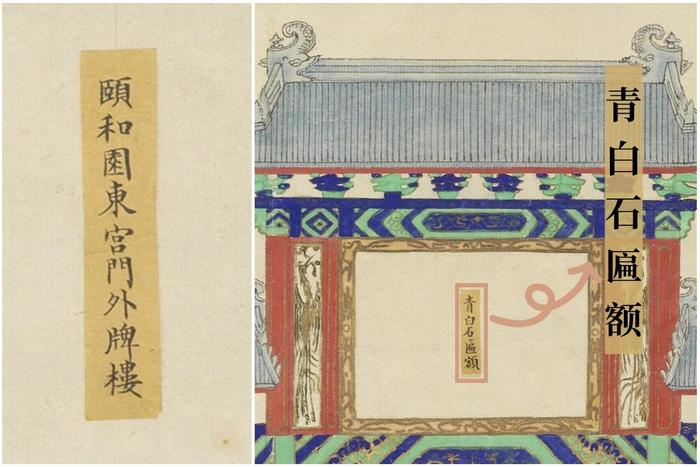 頤和園東宮門外牌樓
青白石匾額
青白石匾额